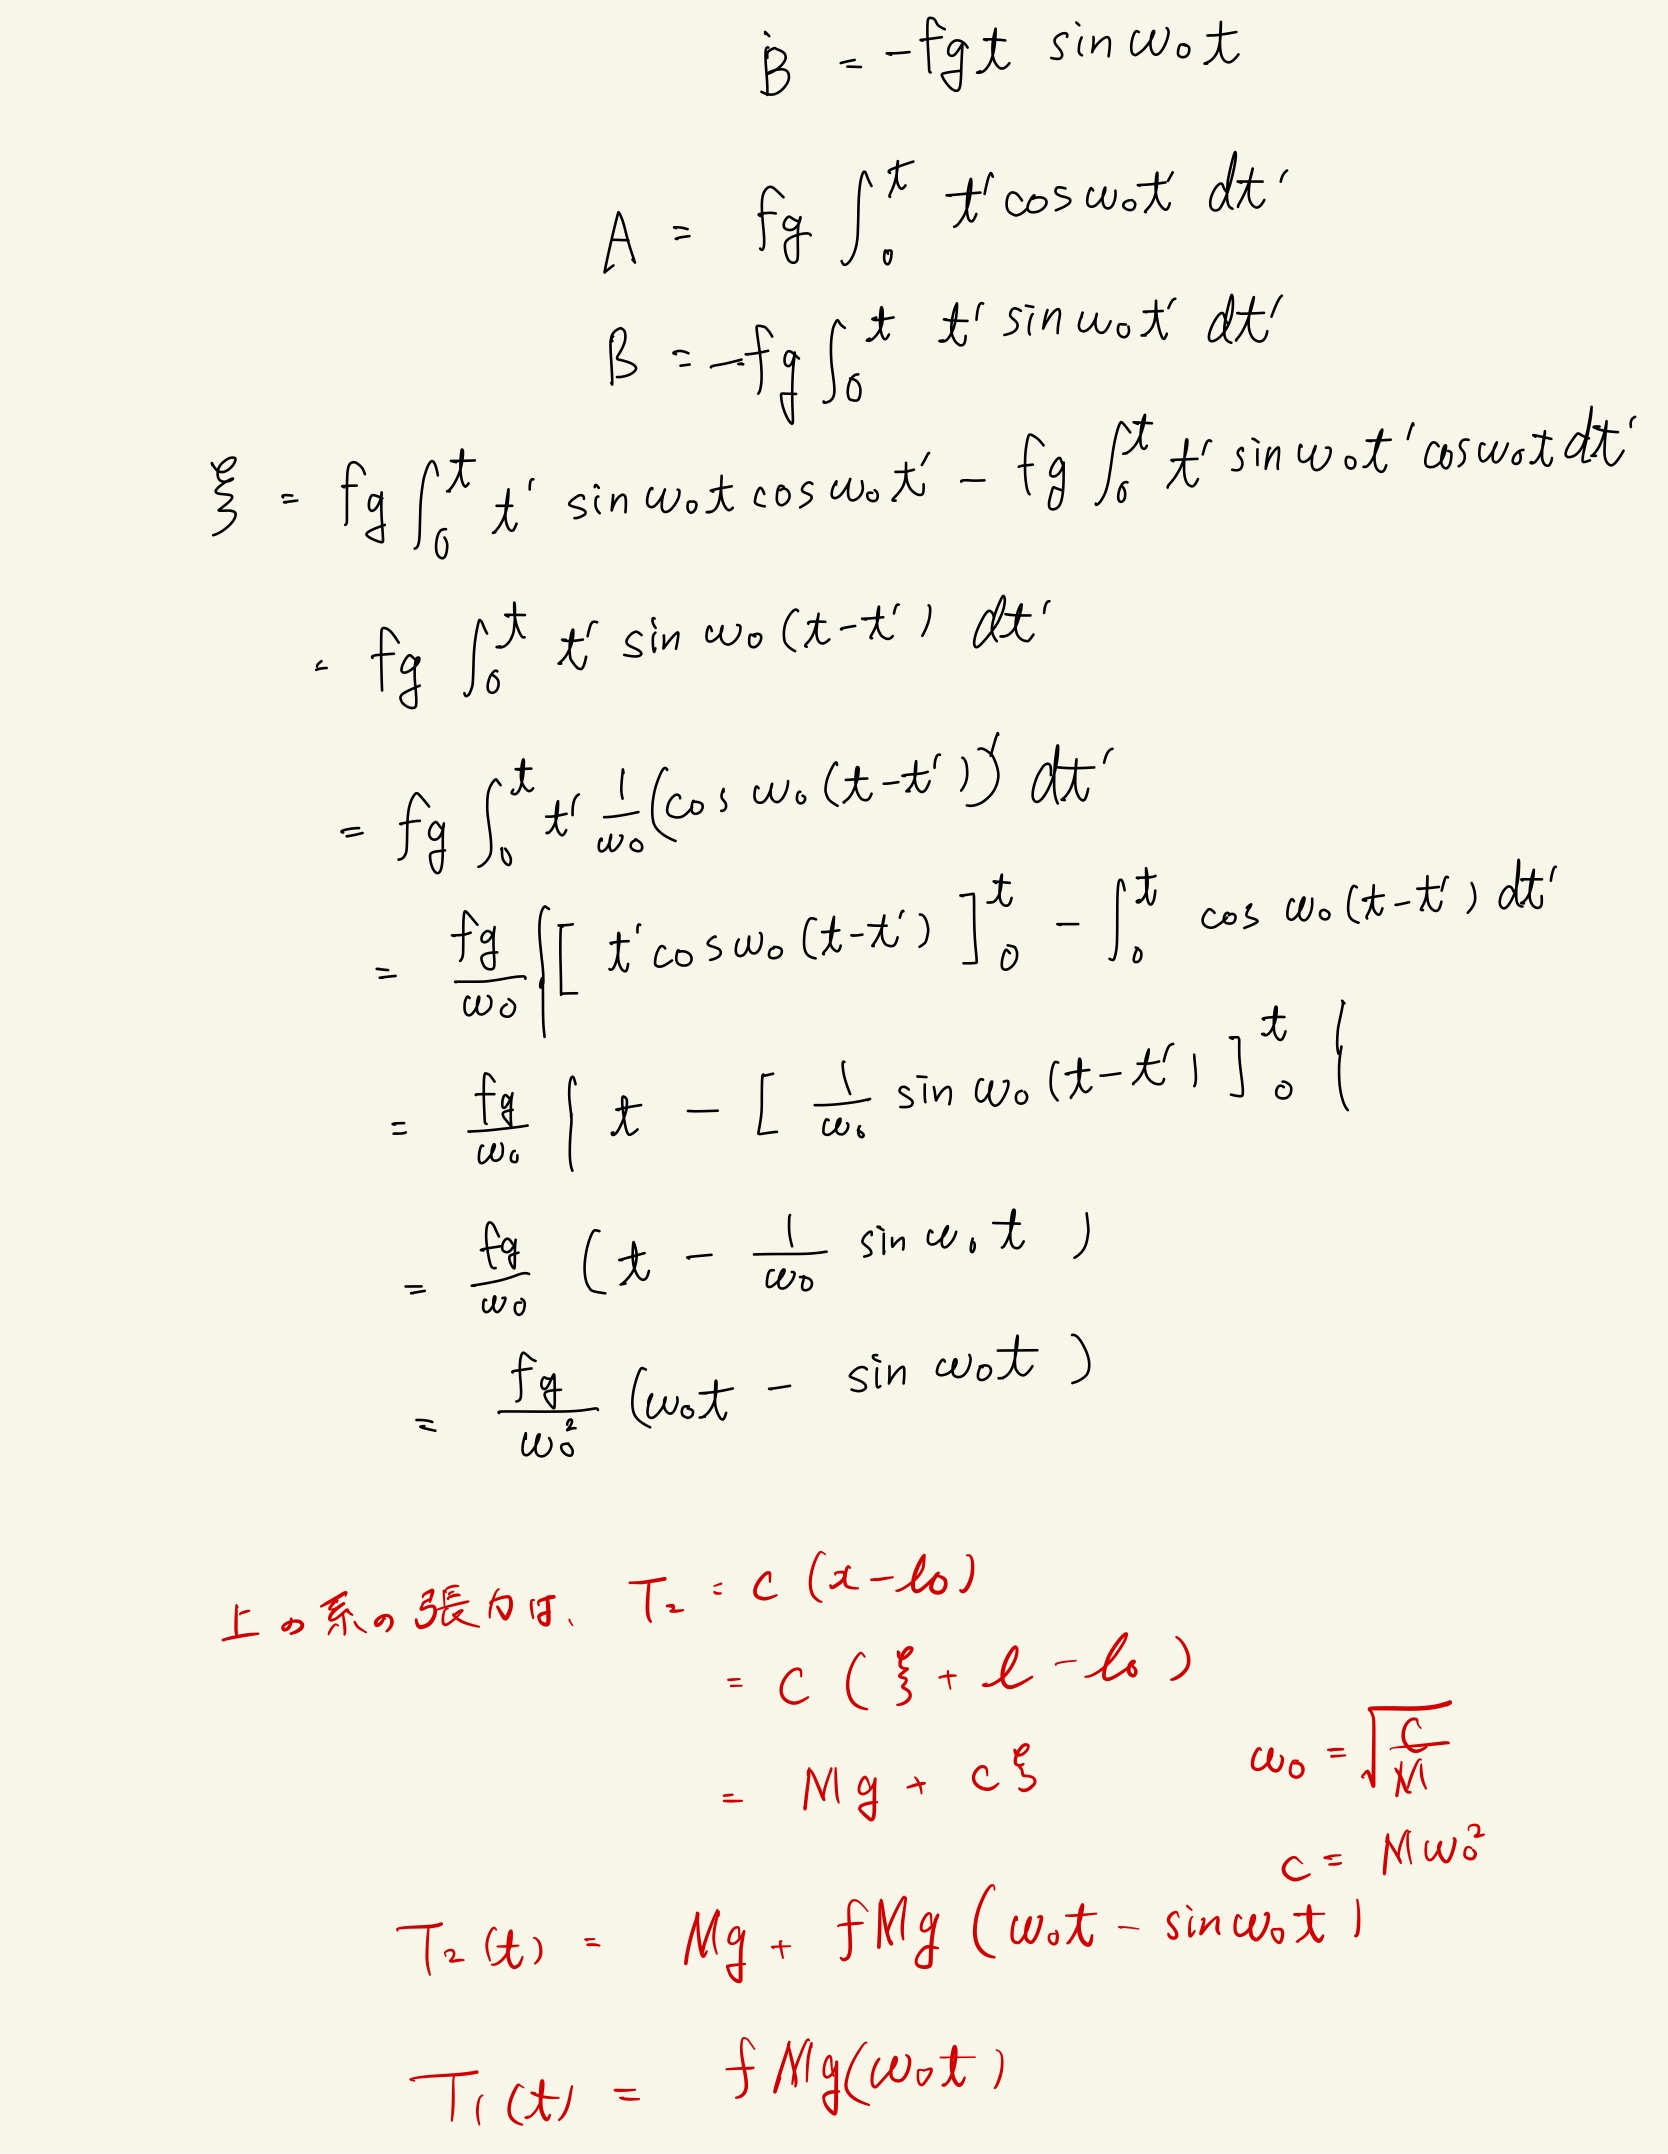 Ḃ = -fgt sin ω₀t
A = fg ∫₀ᵗ t' cos ω₀t' dt'
B = -fg ∫₀ᵗ t' sin ω₀t' dt'
ξ = fg ∫₀ᵗ t' sin ω₀t cos ω₀t' - fg ∫₀ᵗ t' sin ω₀t' cos ω₀t dt'
= fg ∫₀ᵗ t' sin ω₀(t-t') dt'
= fg ∫₀ᵗ t' 1/ω₀ (cos ω₀(t-t'))' dt'
= fg/ω₀ { [ t' cos ω₀(t-t') ]₀ᵗ - ∫₀ᵗ cos ω₀(t-t') dt'
= fg/ω₀ { t - [ 1/ω₀ sin ω₀(t-t') ]₀ᵗ }
= fg/ω₀ (t - 1/ω₀ sin ω₀t)
= fg/ω₀² (ω₀t - sin ω₀t)
上の系の張力は、 T₂ = c (x-l₀)
= c (ξ + l - l₀)
= Mg + cξ
ω₀ = √(c/M)
c = Mω₀²
T₂(t) = Mg + fMg (ω₀t - sin ω₀t)
T₁(t) = fMg(ω₀t)